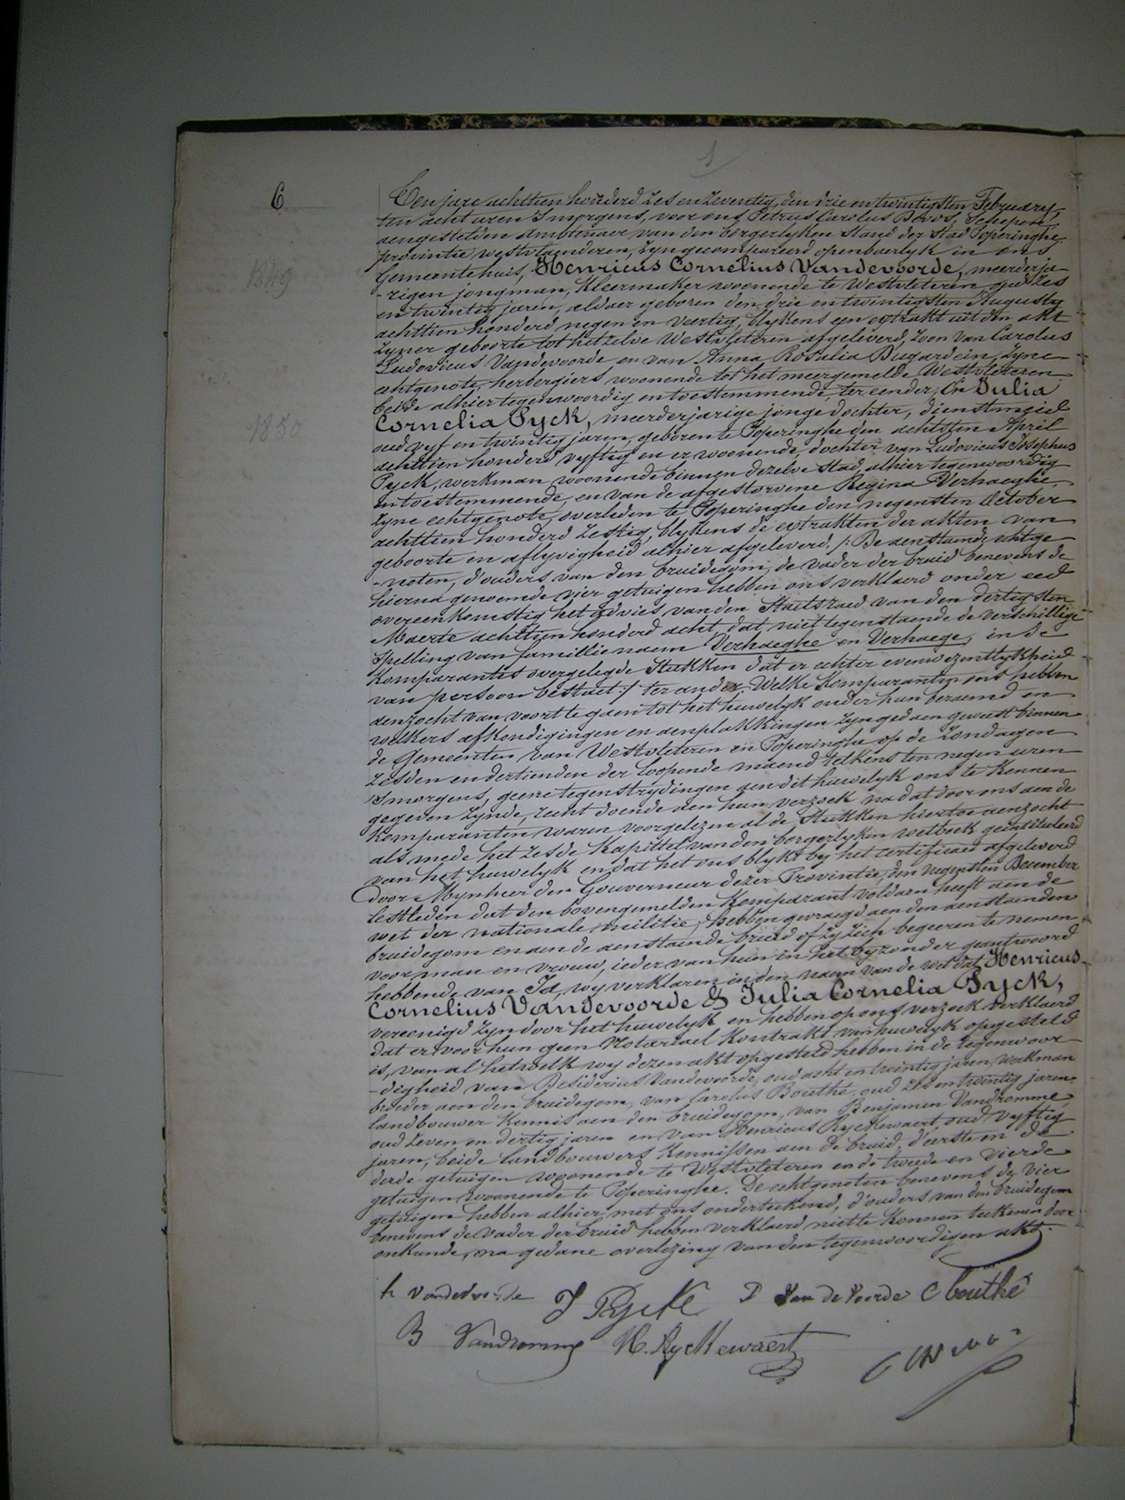 6
1849
1850
Ten jare achttien honderd zes en zeventig, den drie en twintigsten February,
ten acht uren 's morgens, voor ons Petrus Carolus Devos, Schepen,
aengestelden ambtenaer van den borgerlyken stand der stad Poperinghe,
provintie westvlaenderen, zyn gecompareerd openbaerlyk in ons
Gemeentehuis, Henricus Cornelius Vandevoorde, meerderja-
-rigen jongman, kleermaker woonende te Westvleteren oud zes
en twintig jaren, aldaer geboren den drie en twintigsten Augusty
achttien honderd negen en veertig, blykens een extrakt uit den akt
zyner geboorte tot hetzelve Westvleteren afgeleverd, zoon van Carolus
Ludovicus Vandevoorde en van Anna Rosalia Dugardein, zyne
echtgenote, herbergiers woonende tot het meergemelde Westvleteren
beide alhier tegenwoordig en toestemmende, ter eender; En Julia
Cornelia Pyck, meerderjarige jonge dochter, dienstmeid
oud vyf en twintig jaren, geboren te Poperinghe den achtsten April
achttien honderd vyftig en er woonende, dochter van Ludovicus Josephus
Pyck, werkman woonende binnen dezelve stad, alhier tegenwoordig
en toestemmende, en van de afgestorvene Regina Verhaeghe
zyne echtgenote, overleden te Poperinghe den negensten October
achttien honderd zestig, blykens de extrakten der akten van
geboorte en aflyvigheid alhier afgeleverd /: De aenstaende echtge-
-noten, d'ouders van den bruidegom, de vader der bruid benevens de
hierna genoemde vier getuigen hebben ons verklaerd onder eed
overeenkomstig het advies van den Staetsraed van den dertigsten
Maerte achttien honderd acht, dat niet tegenstaende de verschillige
spelling van familie naem Verhaeghe en Verhaege, in de
komparantes overgelegde stukken dat er echter evenwezentlykheid
van persoon bestaet :/ ter ander. Welke komparanten ons hebben
aenzocht van voort te gaen tot het huwelyk onder hun beraemd en
welkers afkondigingen en aenplakkingen zyn gedaen geweest binnen
de Gemeenten van Westvleteren en Poperinghe op de Zondagen
zesden en dertienden der loopende maend telkens ten negen uren
's morgens, geene tegenstrydingen aen dit huwelyk ons te kennen
gegeven zynde, recht doende aen hun verzoek na dat door ons aen de
komparanten waren voorgelezen al de stukken hiertoe aenzocht
als mede het zesde kapittel van den borgerlyken wetboek geintituleerd
van het huwelyk en dat het ons blykt by het certificaet afgeleverd
door Mynheer den Gouverneur dezer Provintie, den negensten December
lestleden dat den bovengemelden komparant voldaen heeft aen de
wet der nationale militie; hebben gevraegd aen den aenstaenden
bruidegom en aen de aenstaende bruid of zy zich begeeren te nemen
voor man en vrouw, ieder van hun in het byzonder geantwoord
hebbende van Ja, wy verklaren in den naem van de wet dat Henricus
Cornelius Vandevoorde & Julia Cornelia Pyck,
vereenigd zyn door het huwelyk en hebben op ons verzoek verklaerd
dat er voor hun geen Notariael kontrakt van huwelyk opgesteld
is, van al hetwelk wy dezen akt opgesteld hebben in de tegenwoor-
-digheid van Desiderius Vandevoorde, oud acht en twintig jaren, werkman
broeder aen den bruidegom, van Carolus Bouthé, oud zes en twintig jaren,
landbouwer kennis aen den bruidegom, van Benjamen Vandromme
oud zeven en dertig jaren en van Henricus Ryckewaert, oud vyftig
jaren, beide landbouwers kennissen aen de bruid, d'eerste en de
derde getuigen woonende te Westvleteren en de tweede en vierde
getuigen woonende te Poperinghe. De echtgenoten benevens de vier
getuigen hebben alhier met ons onderteekend, d'ouders van den bruidegom
benevens de vader der bruid hebben verklaerd niet te konnen teekenen door
onkunde, na gedane overlezing van den tegenwoordigen akt.
h vandevoorde J Pyck D Van de Voorde C bouthé
B Vandromme H. Ryckewaert